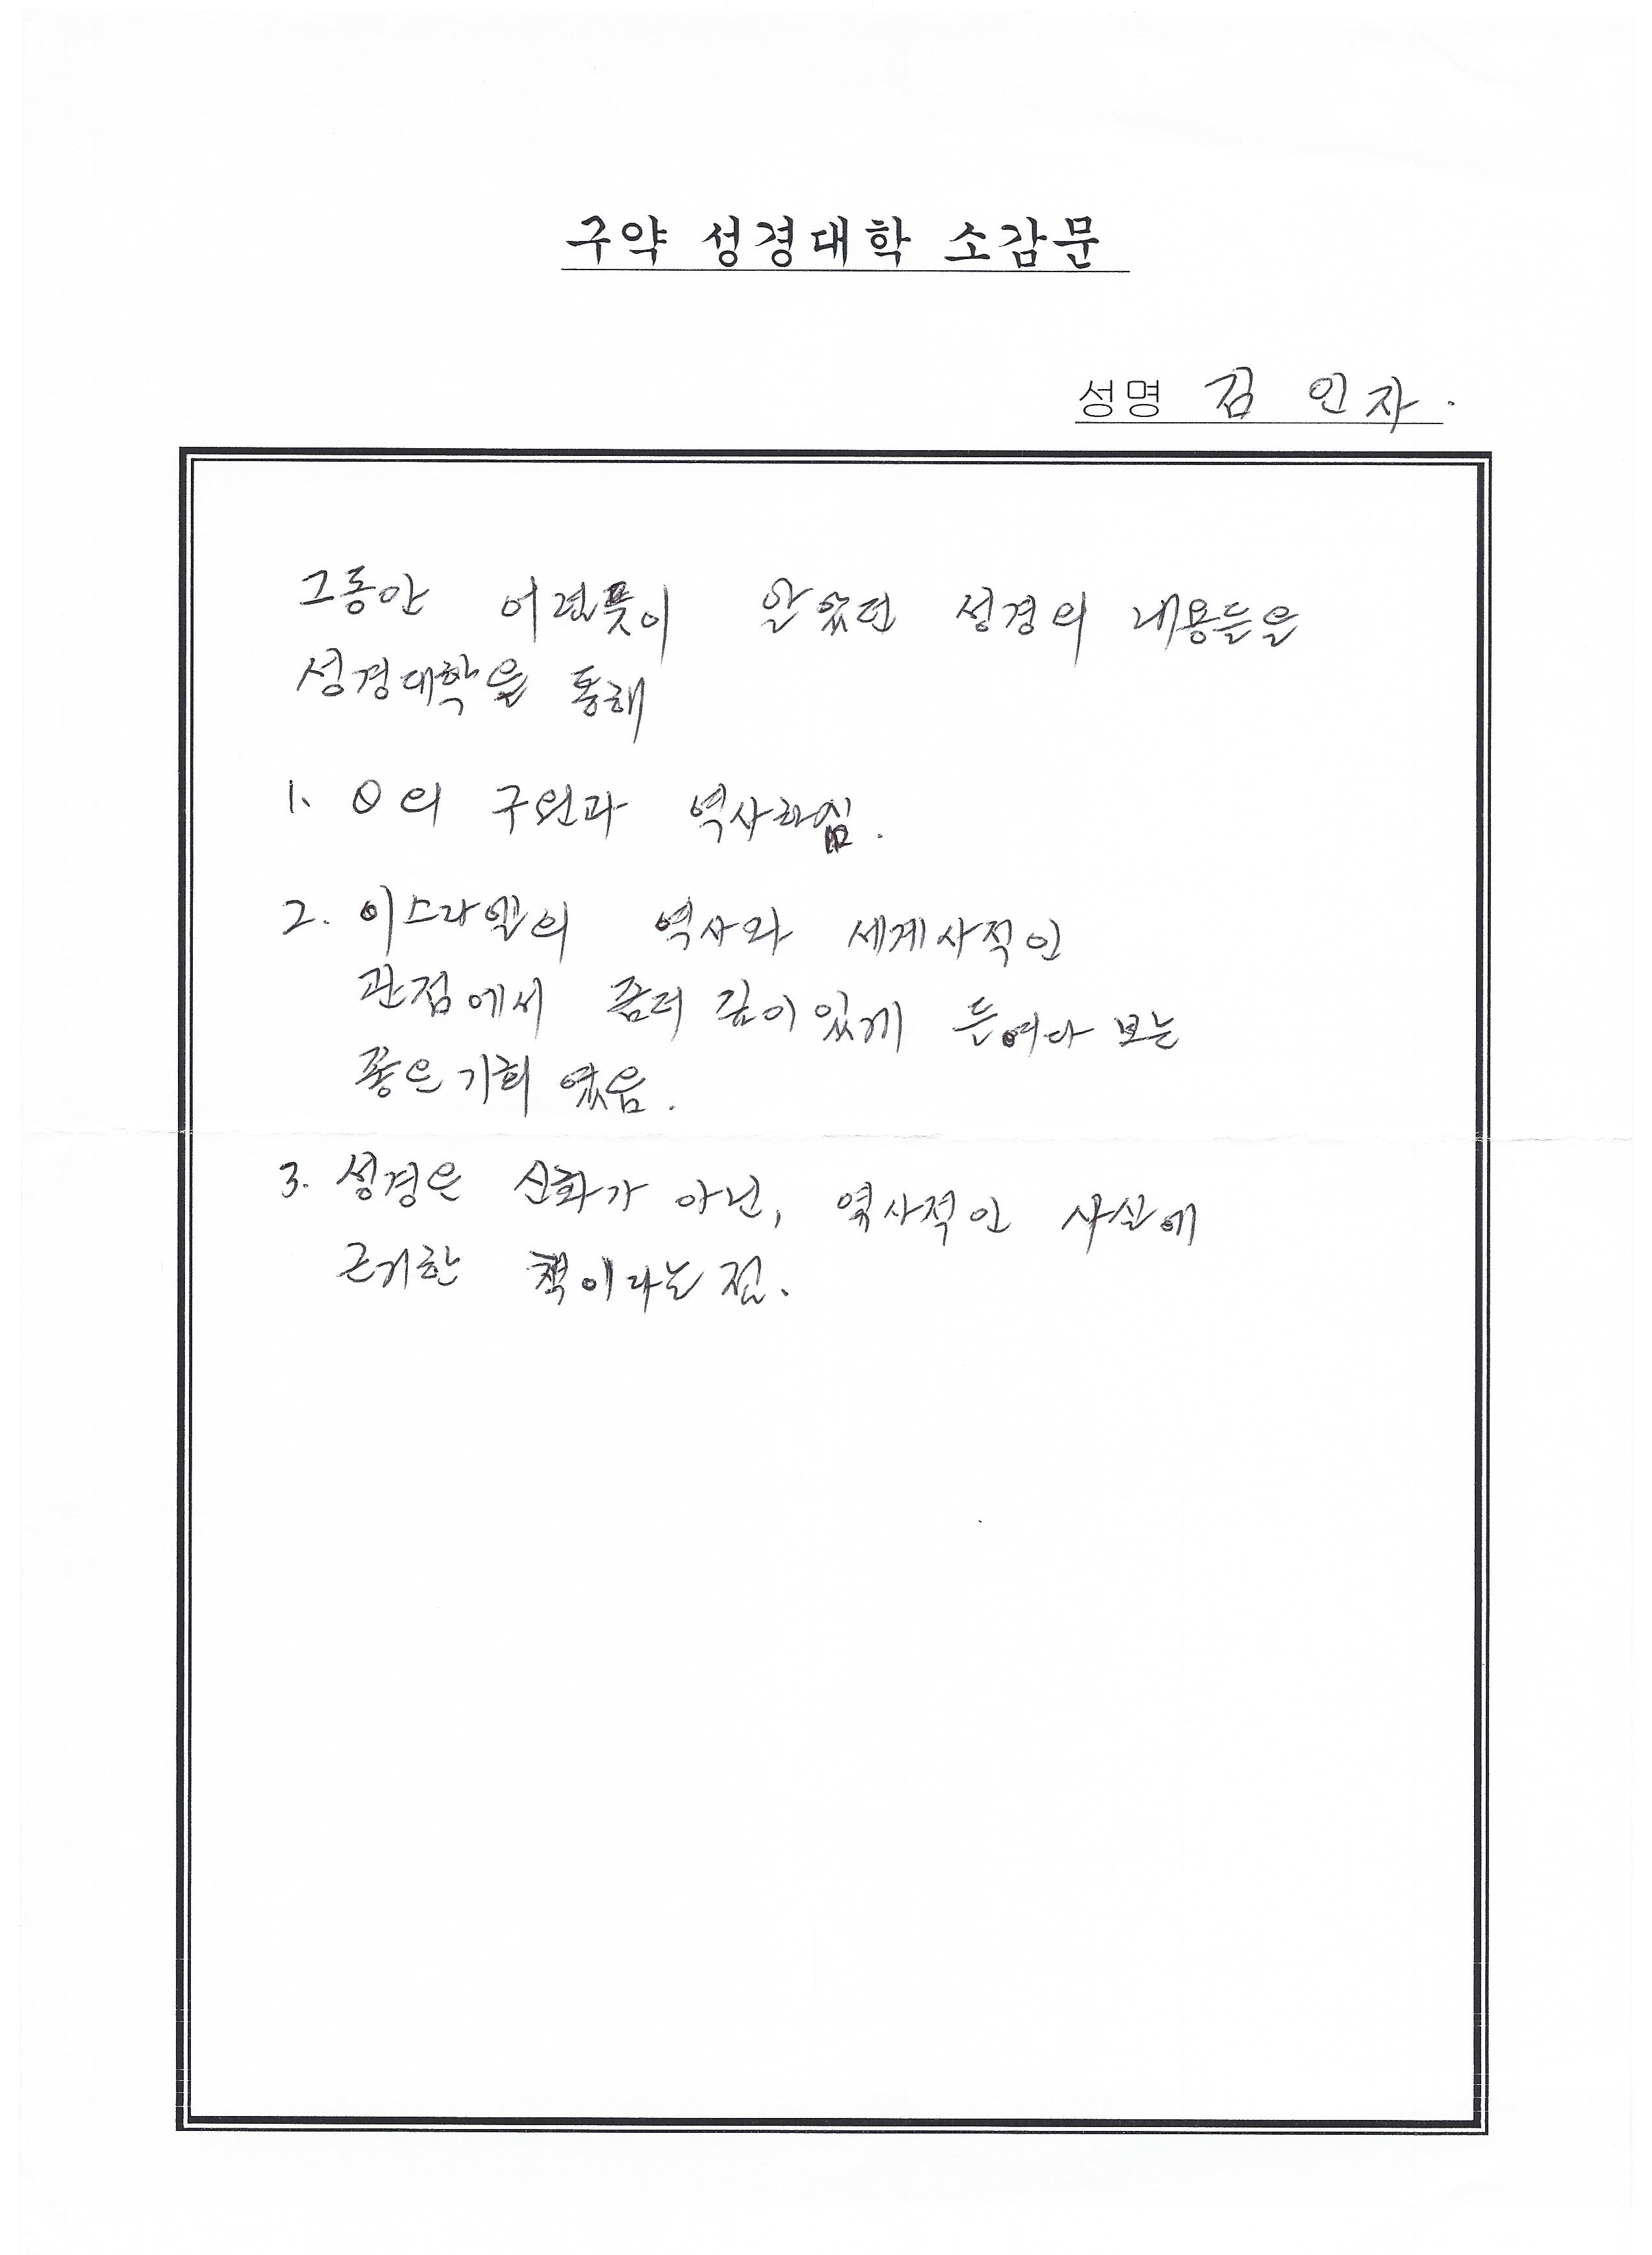 구약 성경대학 소감문
성명 김 인자.
그동안 어렴풋이 알았던 성경의 내용들을
성경대학을 통해
1. Θ의 구원과 역사하심.
2. 이스라엘의 역사와 세계사적인
관점에서 좀더 깊이있게 들여다 보는
좋은기회 였음.
3. 성경은 신화가 아닌, 역사적인 사실에
근거한 책이라는 점.